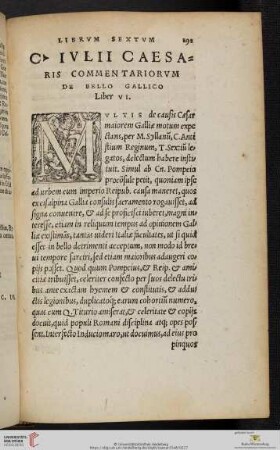 LIBRVM SEXTVM 292
C▸ IVLII CAESA-
RIS COMMENTARIORVM
DE BELLO GALLICO
Liber VI.
MVLTIS de causis Cæsar
maiorem Galliæ motum expe
ctans, per M. Syllanũ, C. Anti
stium Reginum, T. Sextiũ le-
gatos, delectum habere insti
tuit. Simul ab Cn. Pompeio
procõsule petit, quoniam ipse
ad urbem cum imperio Reipub. causa maneret, quos
ex cisalpina Gallia consulis sacramento rogauisset, ad
signa conuenire, & ad se proficisci iuberet, magni in-
teresse, etiam in reliquum tempus ad opinionem Gal
liæ existimãs, tantas uideri Italiæ facultates, ut si quid
esset in bello detrimenti acceptum, non modo id breui
tempore sarciri, sed etiam maioribus adaugeri co-
pijs posset. Quod quum Pompeius, & Reip. & ami
citiæ tribuisset, celeriter confecto per suos delectu tri
bus ante exactam hyemem & constitutis, & addu
ctis legionibus, duplicatoq; earum cohortiũ numero,
quas cum Q. Titurio amiserat, & celeritate & copijs
docuit, quid populi Romani disciplina atq; opes pos-
sent. Interfecto Induciomaro, ut docuimus, ad eius pro
pinquos